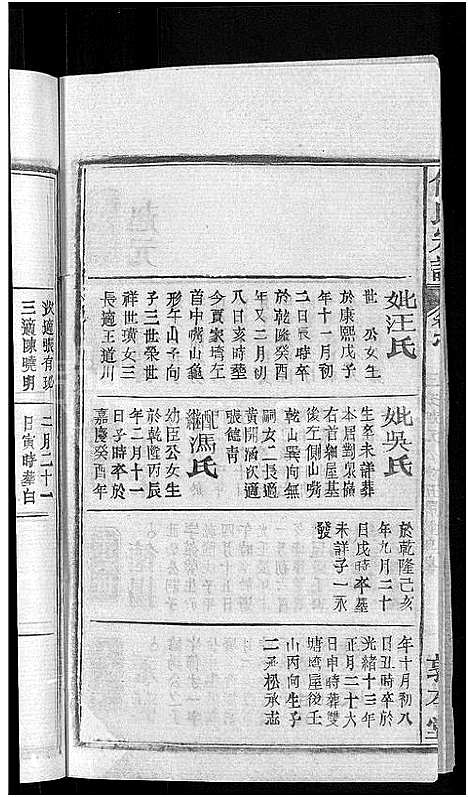 氏宗譜
敦本堂
妣汪氏
世 公女生
於康熙戊子
年十一月初
二日辰時卒
於乾隆癸酉
年又二月初
八日亥時塟
今賈家塆左
首中嘴山龜
形午山子向
子三世榮世
祥世璜女三
長適王道川
次適張有
三適陳曉明
妣吳氏
生卒未詳葬
本居對
右首
後左側山嘴
乾山巽向無
嗣女二長適
黃開涵次適
張德青
繼配馮氏
幼臣公女生
於乾隆丙辰
年二月十一
日子時卒於
嘉慶癸酉年
二月二十一
日寅時葬白
於乾隆己亥
年九月二十
日戌時卒墓
未詳子一永
發
年十月初八
日丑時卒於
光緒十三年
正月二十六
日申時葬雙
塘塆屋後壬
山丙向生子
二承松承志